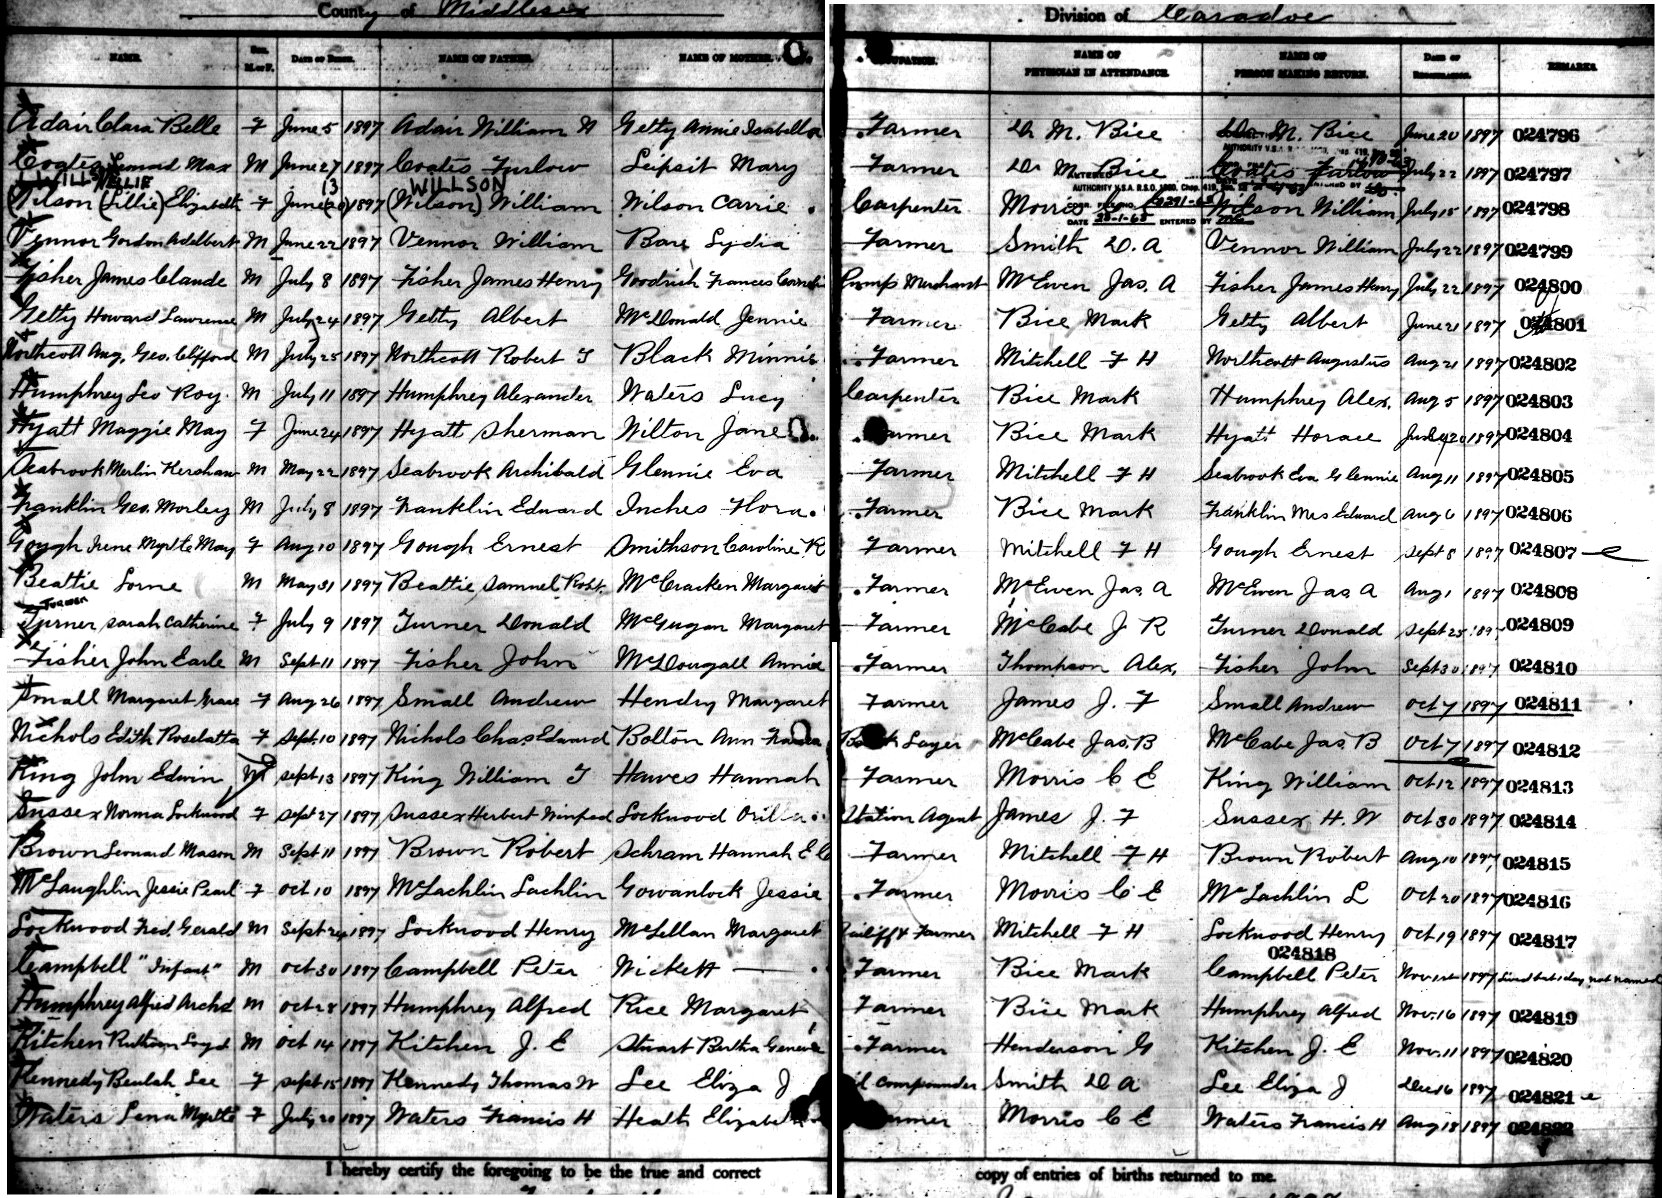 County of Middlesex Division of Caradoc
NAME. Sex. M. or F. DATE OF BIRTH. NAME OF FATHER. NAME OF MOTHER. OCCUPATION. NAME OF PHYSICIAN IN ATTENDANCE. NAME OF PERSON MAKING RETURN. DATE OF REGISTRATION. REMARKS.
Adair Clara Belle F June 5 1897 Adair William N Getty Annie Isabella Farmer Dr M. Bice M. Bice June 20 1897 024796
Coates Max M June 27 1897 Coates Furlow Lipsit Mary Farmer Dr M Bice Coates Farlow July 22 1897 024797
WILLSON NELLIE 13 WILLSON
(Wilson (Lillie) Elizabeth F June (20) 1897 (Wilson) William Wilson Carrie Carpenter Morris Wilson William July 15 1897 024798
AUTHORITY V.S.A. R.S.O. Chap. 419,
DATE 25-1-65 ENTERED BY
Vennor Gordon Adelbert M June 22 1897 Vennor William Bare Lydia Farmer Smith D. A Vennor William July 22 1897 024799
Fisher James Claude M July 8 1897 Fisher James Henry Goodrich Frances Pump Merchant McEwen Jas. A Fisher James Henry July 22 1897 024800
Getty Howard Lawrence M July 24 1897 Getty Albert McDonald Jennie Farmer Bice Mark Getty Albert June 21 1897 024801
Northcott Aug. Geo. Clifford M July 25 1897 Northcott Robert T Black Minnie Farmer Mitchell F H Northcott Augustus Aug 21 1897 024802
Humphrey Leo Roy. M July 11 1897 Humphrey Alexander Waters Lucy Carpenter Bice Mark Humphrey Alex. Aug 5 1897 024803
Hyatt Maggie May F June 24 1897 Hyatt Sherman Wilton Jane Farmer Bice Mark Hyatt Horace 1897 024804
Seabrook Merlin Kershaw M May 22 1897 Seabrook Archibald Glennie Eva Farmer Mitchell F H Seabrook Eva Glennie Aug 11 1897 024805
Franklin Geo. Morley M July 8 1897 Franklin Edward Inches Flora. Farmer Bice Mark Franklin Mrs Edward Aug 6 1897 024806
Gough Irene Myrtle May F Aug 10 1897 Gough Ernest Smithson Caroline K Farmer Mitchell F H Gough Ernest Sept 8 1897 024807
Beattie Lorne M May 31 1897 Beattie Samuel Robt. McCracken Margaret Farmer McEwen Jas A McEwen Jas A Aug 1 1897 024808
Turner
Turner Sarah Catherine F July 9 1897 Turner Donald McGugan Margaret Farmer McCabe J R Turner Donald Sept 25 1897 024809
Fisher John Earle M Sept 11 1897 Fisher John McDougall Annie Farmer Thompson Alex. Fisher John Sept 30 1897 024810
Small Margaret Grace F Aug 26 1897 Small Andrew Hendry Margaret Farmer James J. F Small Andrew Oct 7 1897 024811
Nichols Edith Roselatta F Sept. 10 1897 Nichols Chas Edward Bolton Ann Layer McCabe Jas. B McCabe Jas B Oct 7 1897 024812
King John Edwin M Sept 13 1897 King William T Hawes Hannah Farmer Morris C E King William Oct 12 1897 024813
Sussex Norma Lockwood F Sept 27 1897 Sussex Herbert Winfred Lockwood Orilla Station Agent James J. F Sussex H. W Oct 30 1897 024814
Brown Leonard Mason M Sept 11 1897 Brown Robert Schram Hannah E Farmer Mitchell F H Brown Robert Aug 10 1897 024815
McLaughlin Jessie Pearl F Oct 10 1897 McLachlin Lachlin Gowanlock Jessie Farmer Morris C E McLachlin L Oct 20 1897 024816
Lockwood Fred. Gerald M Sept 24 1897 Lockwood Henry McLellan Margaret Bailiff & Farmer Mitchell F H Lockwood Henry Oct 19 1897 024817
024818
Campbell "Infant" M Oct 30 1897 Campbell Peter Wickett — Farmer Bice Mark Campbell Peter Nov 1st 1897 lived but 1 day not named
Humphrey Alfred Archd M Oct 28 1897 Humphrey Alfred Rice Margaret Farmer Bice Mark Humphrey Alfred Nov. 16 1897 024819
Kitchen Loyd M Oct 14 1897 Kitchen J. E Stuart Bertha Genevie Farmer Henderson G Kitchen J. E Nov. 11 1897 024820
Kennedy Beulah Lee F Sept 15 1897 Kennedy Thomas W Lee Eliza J Oil Compounder Smith D A Lee Eliza J Dec 16 1897 024821
Waters Lena Myrtle F July 20 1897 Waters Francis H Heath Elizabeth Farmer Morris C E Waters Francis H Aug 18 1897 024822
I hereby certify the foregoing to be the true and correct copy of entries of births returned to me.